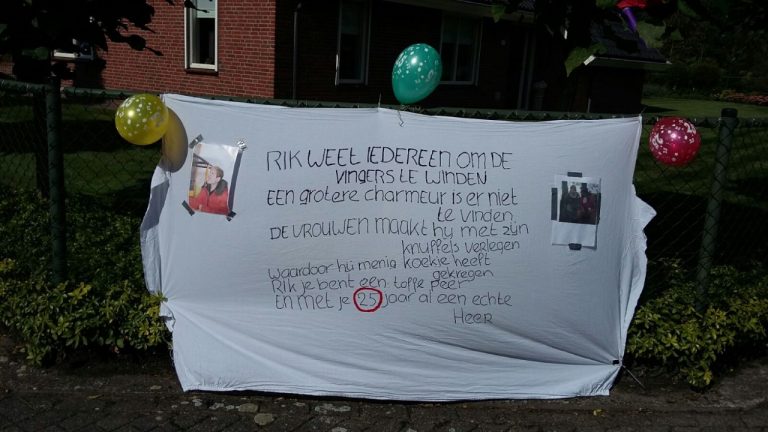 RIK WEET IEDEREEN OM DE
VINGERS TE WINDEN
EEN grotere charmeur is er niet
te vinden
DE VROUWEN MAAKT hij MET zijn
knuffels verlegen
waardoor hij menig koekje heeft
gekregen
RIK je bent een toffe peer
En met je 25 jaar al een echte
Heer